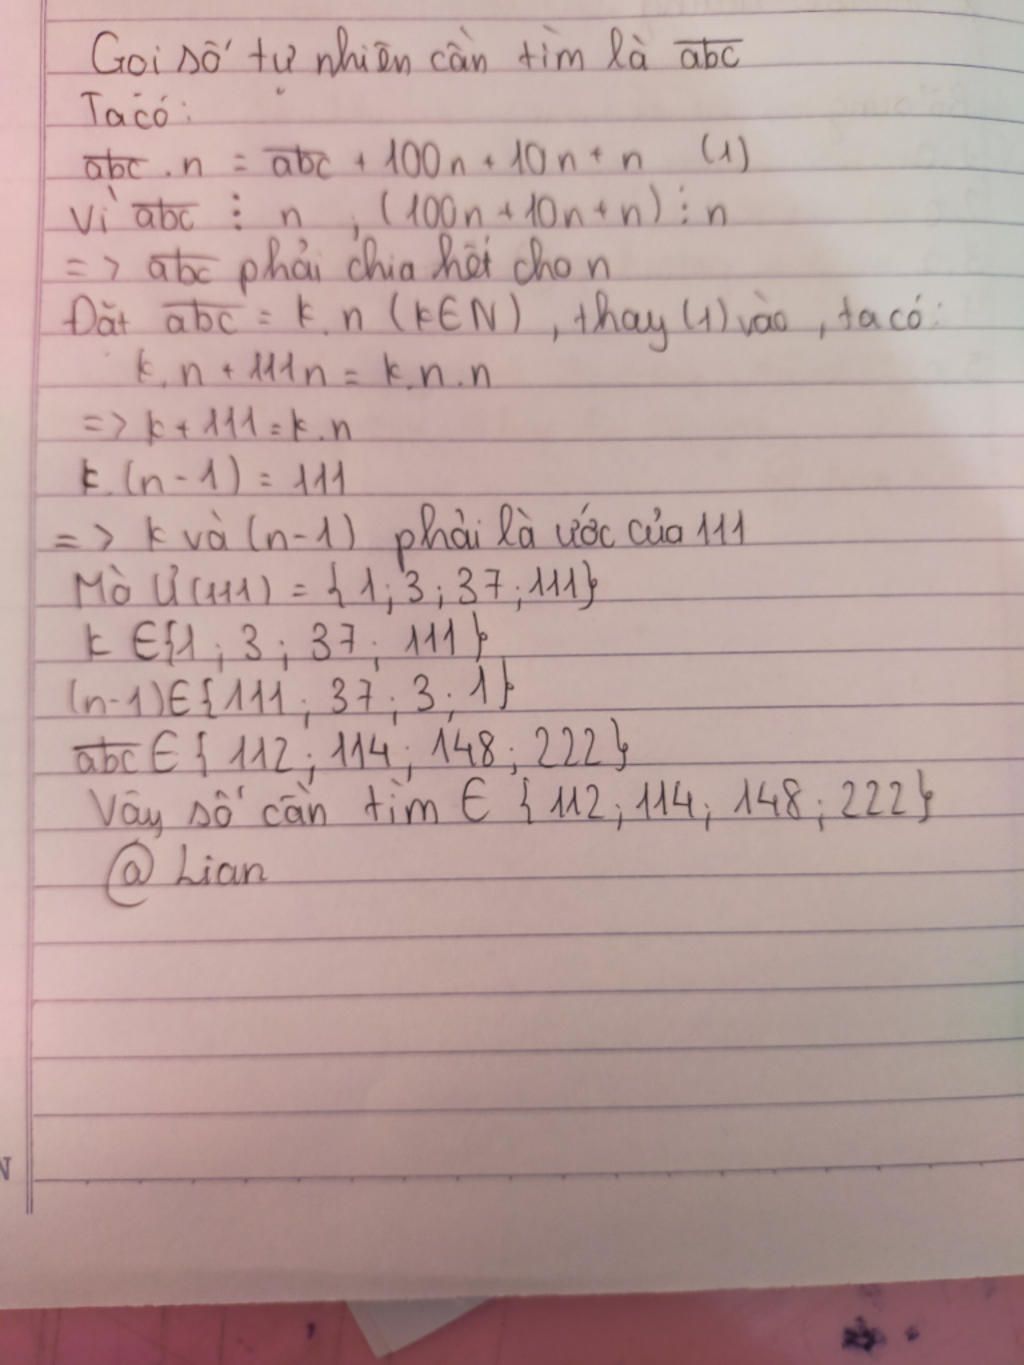 Gọi số tự nhiên cần tìm là abc
Ta có:
abc . n = abc + 100n + 10n + n (1)
Vì abc ⋮ n , (100n + 10n + n) ⋮ n
=> abc phải chia hết cho n
Đặt abc = k.n (k∈N), thay (1) vào, ta có:
k.n + 111n = k.n.n
=> k + 111 = k.n
k.(n-1) = 111
=> k và (n-1) phải là ước của 111
Mà Ư(111) = {1; 3; 37; 111}
k ∈ {1; 3; 37; 111}
(n-1) ∈ {111; 37; 3; 1}
abc ∈ {112; 114; 148; 222}
Vậy số cần tìm ∈ {112; 114; 148; 222}
@ Lian
N